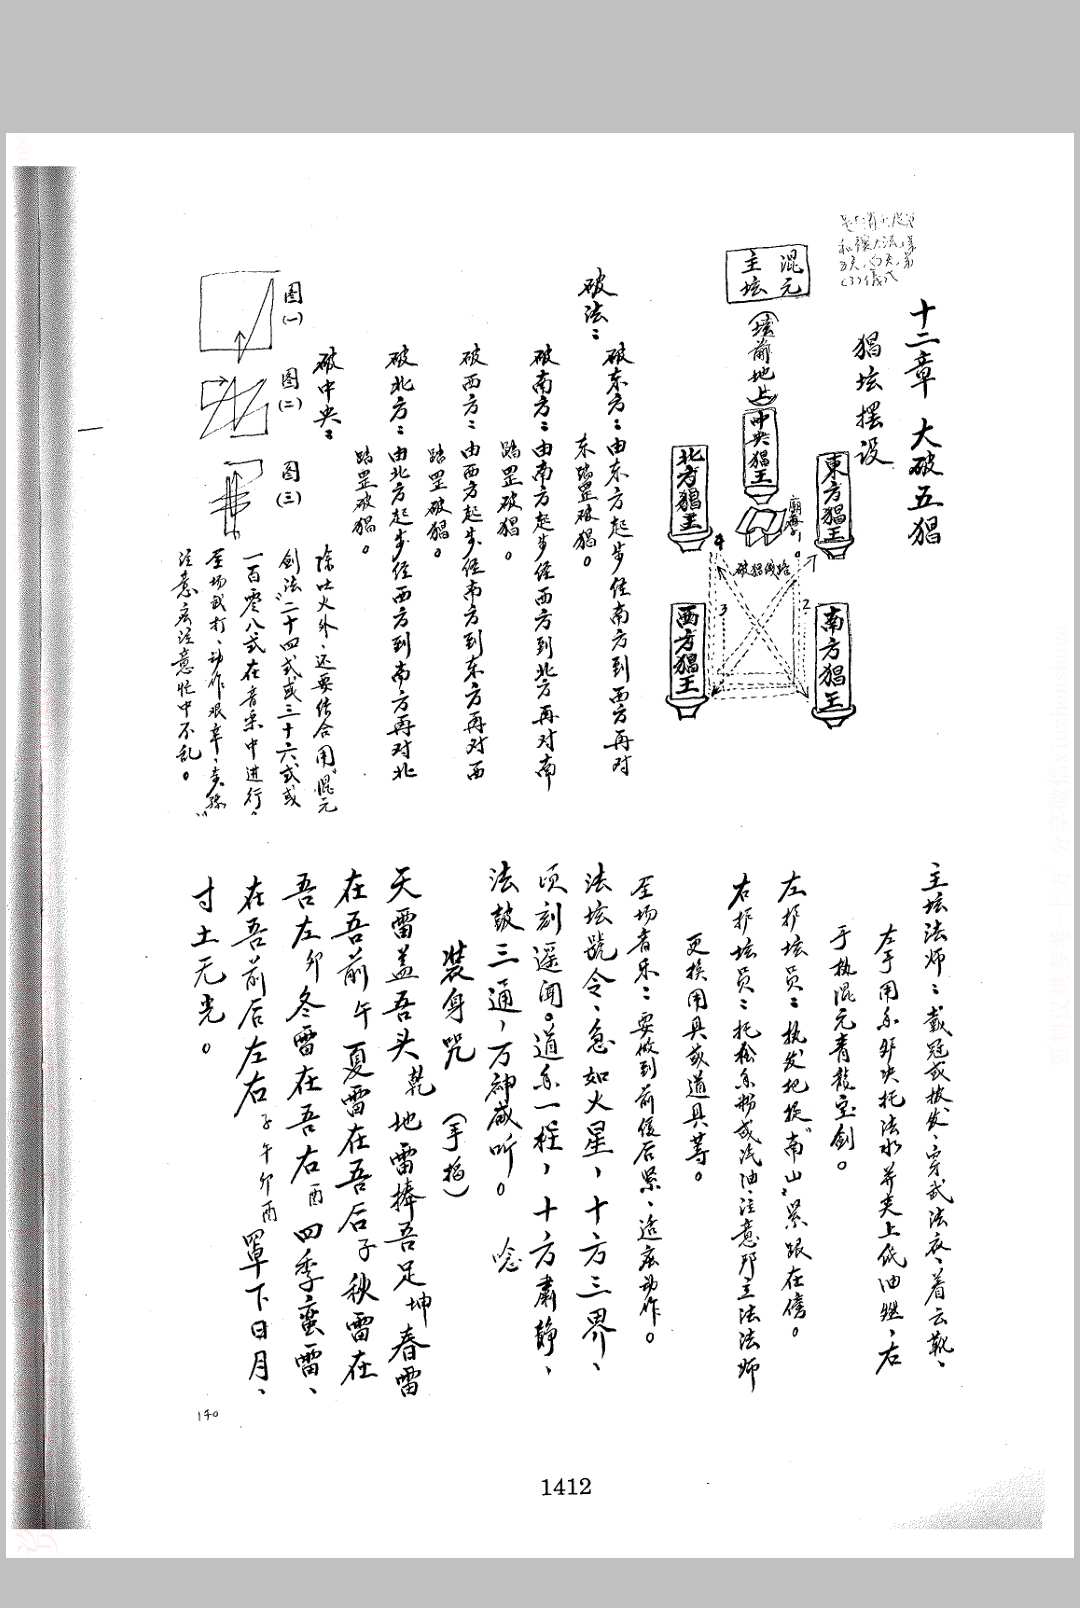 十二章 大破五猖
猖坛摆设
混元
主坛
（坛前地上）
中央猖王
北方猖王
東方猖王
西方猖王
南方猖王
破猖线路
1
2
3
4
破法：
破东方：由东方起步径南方到西方再对
东踏罡破猖。
破南方：由南方起步径西方到北方再对南
踏罡破猖。
破西方：由西方起步径南方到东方再对西
踏罡破猖。
破北方：由北方起步径西方到南方再对北
踏罡破猖。
破中央：
图(一)
图(二)
图(三)
除吐火外、还要结合用“混元
剑法”二十四式或三十六式或
一百零八式在音乐中进行，
全场武打、动作艰辛、
注意应注意忙中不乱。
主坛法师：戴冠或披发、穿武法衣、着云靴、
左手用托法水并夹上纸油燃、右
手执混元青龙宝剑。
左护坛员：执发地捉“南山”紧跟在傍。
右护坛员：托松香粉或汽油、注意于主法法师
更换用具或道具等。
全场音乐：要做到前缓后紧、适应动作。
法坛號令、急如火星，十方三界、
顷刻遥闻。道香一程，十方肃静、
法鼓三通，万神咸听。 唸
装身咒 （手指）
天雷盖吾头乾 地雷捧吾足坤 春雷
在吾前午 夏雷在吾后子 秋雷在
吾左卯 冬雷在吾右酉 四季蛮雷、
在吾前后左右子午卯酉 罩下日月、
寸土无光。
140
1412